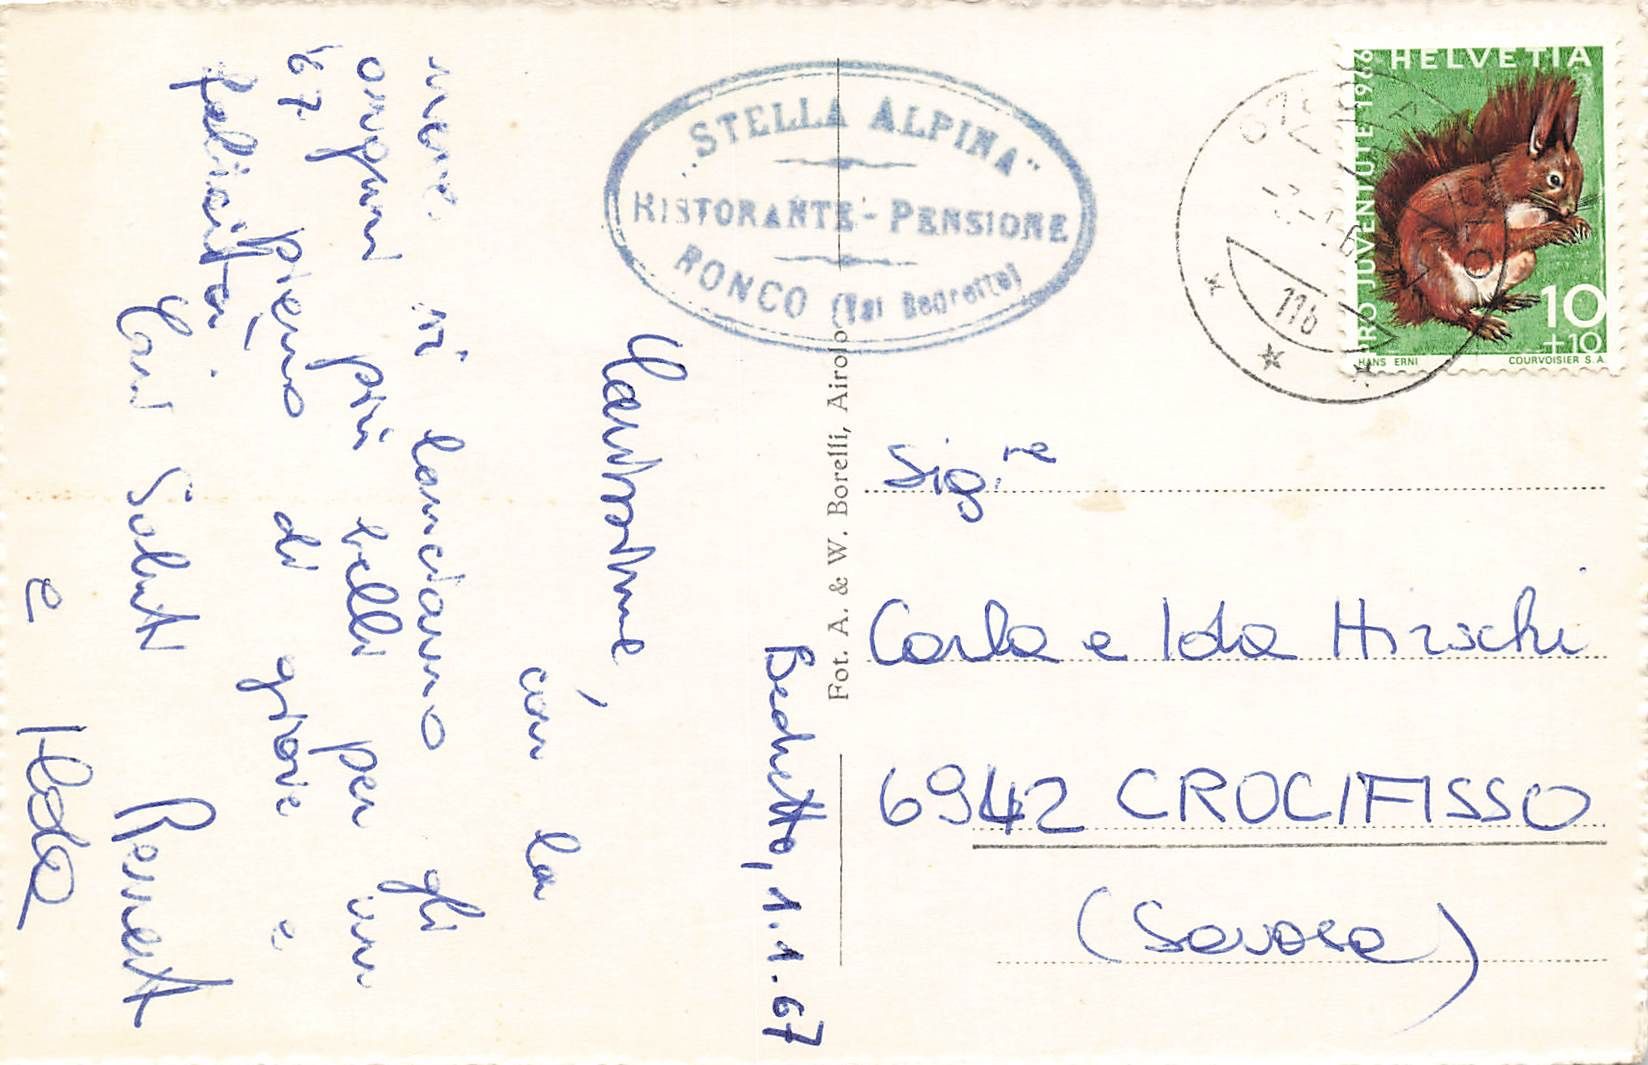 Bedretto, 1.1.67
Carissime, con la
neve vi lanciamo gli
auguri più belli per un
67 pieno di gioie e
felicità.
Cari Saluti
e Alda
"STELLA ALPINA"
RISTORANTE - PENSIONE
RONCO (Val Bedretto)
Fot. A. & W. Borelli, Airolo
HELVETIA
PRO JUVENTUTE 1966
10
+10
HANS ERNI COURVOISIER S.A.
116
Sig.re
Carla e Ida Hirschi
6942 CROCIFISSO
(Savosa)